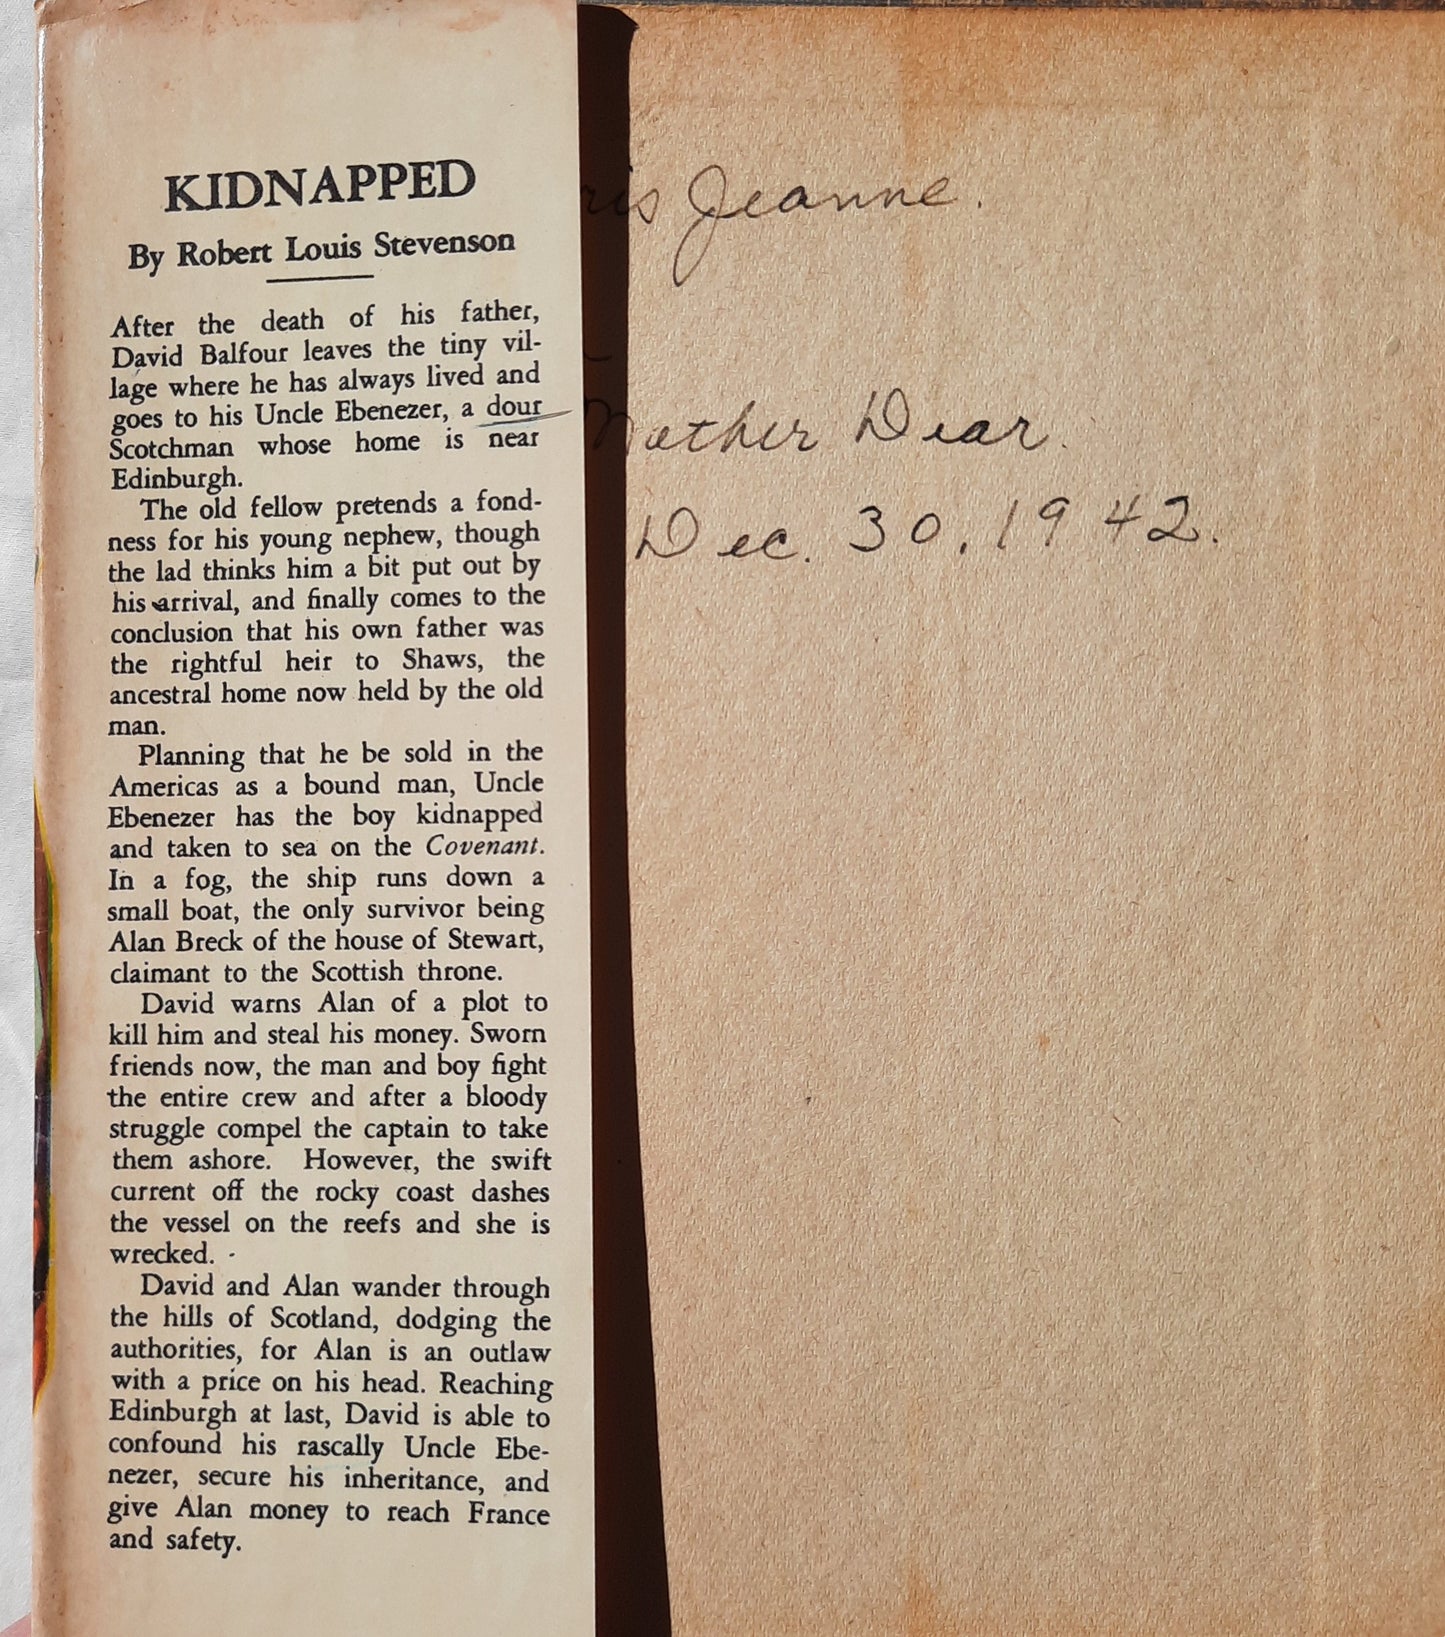 KIDNAPPED
By Robert Louis Stevenson
After the death of his father,
David Balfour leaves the tiny vil-
lage where he has always lived and
goes to his Uncle Ebenezer, a dour
Scotchman whose home is near
Edinburgh.
The old fellow pretends a fond-
ness for his young nephew, though
the lad thinks him a bit put out by
his arrival, and finally comes to the
conclusion that his own father was
the rightful heir to Shaws, the
ancestral home now held by the old
man.
Planning that he be sold in the
Americas as a bound man, Uncle
Ebenezer has the boy kidnapped
and taken to sea on the Covenant.
In a fog, the ship runs down a
small boat, the only survivor being
Alan Breck of the house of Stewart,
claimant to the Scottish throne.
David warns Alan of a plot to
kill him and steal his money. Sworn
friends now, the man and boy fight
the entire crew and after a bloody
struggle compel the captain to take
them ashore. However, the swift
current off the rocky coast dashes
the vessel on the reefs and she is
wrecked.
David and Alan wander through
the hills of Scotland, dodging the
authorities, for Alan is an outlaw
with a price on his head. Reaching
Edinburgh at last, David is able to
confound his rascally Uncle Ebe-
nezer, secure his inheritance, and
give Alan money to reach France
and safety.
Jeanne.
Mother Dear.
Dec. 30, 1942.